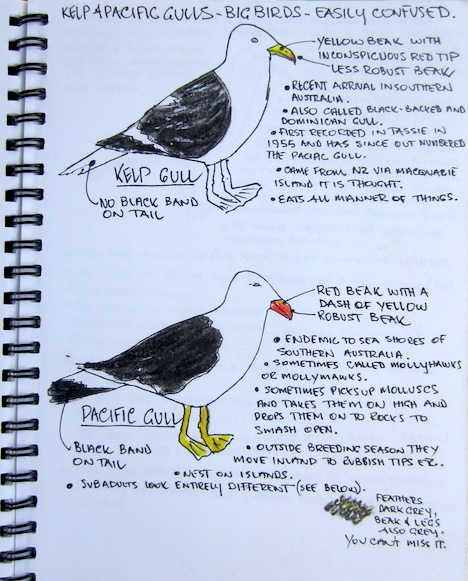 KELP & PACIFIC GULLS - BIG BIRDS - EASILY CONFUSED.
YELLOW BEAK WITH
INCONSPICUOUS RED TIP
LESS ROBUST BEAK
• RECENT ARRIVAL IN SOUTHERN
AUSTRALIA.
• ALSO CALLED BLACK-BACKED AND
DOMINICAN GULL.
• FIRST RECORDED IN TASSIE IN
1955 AND HAS SINCE OUT NUMBERED
THE PACIFIC GULL.
• CAME FROM NZ VIA MACQUARIE
ISLAND IT IS THOUGHT.
• EATS ALL MANNER OF THINGS.
KELP GULL
NO BLACK BAND
ON TAIL
RED BEAK WITH A
DASH OF YELLOW
ROBUST BEAK
• ENDEMIC TO SEA SHORES OF
SOUTHERN AUSTRALIA.
• SOMETIMES CALLED MOLLYHAWKS
OR MOLLYMAWKS.
• SOMETIMES PICKS UP MOLLUSCS
AND TAKES THEM ON HIGH AND
DROPS THEM ON TO ROCKS TO
SMASH OPEN.
PACIFIC GULL
BLACK BAND
ON TAIL
• OUTSIDE BREEDING SEASON THEY
MOVE INLAND TO RUBBISH TIPS ETC.
• NEST ON ISLANDS.
• SUBADULTS LOOK ENTIRELY DIFFERENT (SEE BELOW).
FEATHERS
DARK GREY,
BEAK & LEGS
ALSO GREY.
YOU CAN'T MISS IT.